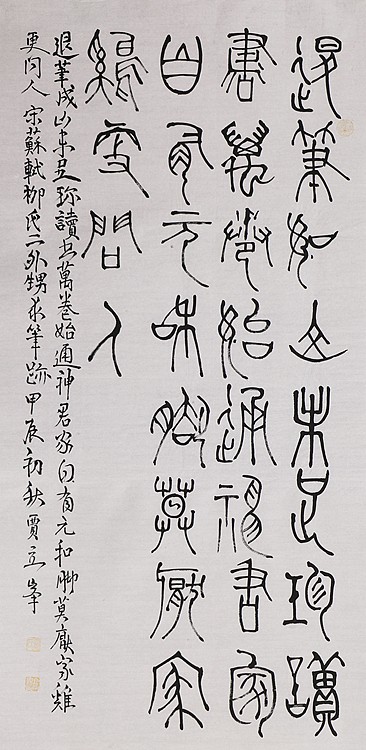 退筆如山未足珍讀
書萬卷始通神君家
自有元和腳莫厭家
雞更問人
退筆成山未足珍讀書萬卷始通神君家自有元和腳莫厭家雞
更問人宋蘇軾柳氏二外甥求筆跡甲辰初秋賈立峯